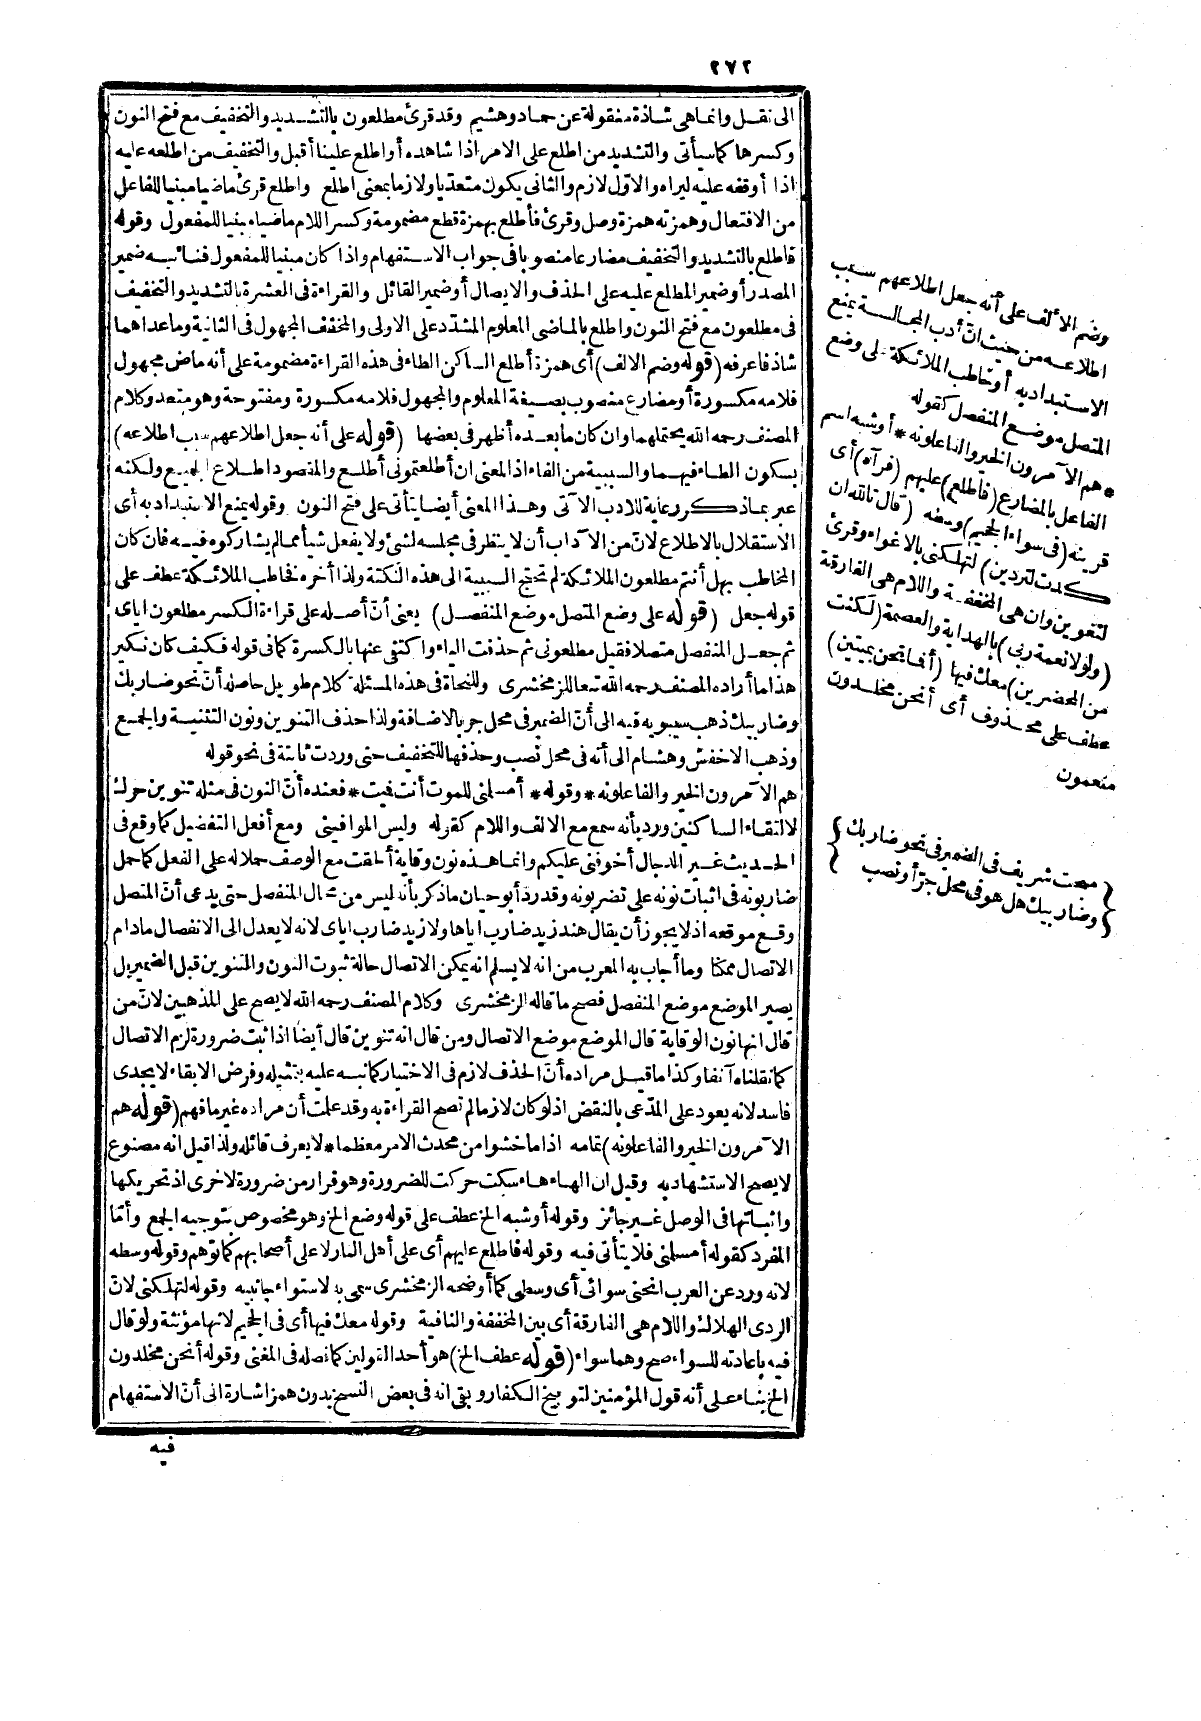 ٢٧٢
الى نقل وانما هى شاذة منقولة عن حماد وهشيم وقد قرئ مطلعون بالتشديد والتخفيف مع فتح النون
وكسرها كما سيأتى والتشديد من اطلع على الامر اذا شاهده أو اطلع علينا أقبل والتخفيف من اطلعه عليه
اذا أوقفه عليه ليراه والاوّل لازم والثانى يكون متعديا ولازما بمعنى اطلع واطلع قرئ ماضيا مبنيا للفاعل
من الافتعال وهمزته همزة وصل وقرئ فأطلع بهمزة قطع مضمومة وكسر اللام ماضيا مبنيا للمفعول وقوله
فاطلع بالتشديد والتخفيف مضارعا منصوبا فى جواب الاستفهام واذا كان مبنيا للمفعول فنائبه ضمير
المصدر أو ضمير المطلع عليه على الحذف والايصال أو ضمير القائل والقراءة فى العشرة بالتشديد والتخفيف
فى مطلعون مع فتح النون واطلع بالماضى المعلوم المشدّد على الاولى والمخفف المجهول فى الثانية وما عداهما
شاذ فاعرفه (قوله وضم الالف) أى همزة أطلع الساكن الطاء فى هذه القراءة مضمومة على أنه ماض مجهول
فلامه مكسورة أو مضارع منصوب بصيغة المعلوم والمجهول فلامه مكسورة ومفتوحة وهو متعد وكلام
المصنف رحمه الله يحتملهما وان كان ما بعده أظهر فى بعضها (قوله على أنه جعل اطلاعهم سبب اطلاعه)
بسكون الطاء فيهما والسببية من الفاء اذ المعنى ان أطلعتمونى أطلع والمقصود اطلاع الجميع ولكنه
عبر بما ذكر رعاية للادب الآتى وهذا المعنى أيضا يتأتى على فتح النون وقوله يمنع الاستبداد به أى
الاستقلال بالاطلاع لانّ من الآداب أن لا ينظر فى مجلسه لشئ ولا يفعل شيأ مما لم يشاركوه فيه فان كان
المخاطب بهل أنتم مطلعون الملائكة لم تحتج السببية الى هذه النكتة ولذا أخره فخاطب الملائكة عطف على
قوله جعل (قوله على وضع المتصل موضع المنفصل) يعنى أنّ أصله على قراءة الكسر مطلعون اياى
ثم جعل المنفصل متصلا فقيل مطلعونى ثم حذفت الياء واكتفى عنها بالكسرة كما فى قوله فكيف كان نكير
هذا ما أراده المصنف رحمه الله تبعا للزمخشرى وللنحاة فى هذه المسئلة كلام طويل حاصله أنّ نحو ضاربك
وضاربيك ذهب سيبويه فيه الى أنّ الضمير فى محل جر بالاضافة ولذا حذف التنوين ونون التثنية والجمع
وذهب الاخفش وهشام الى أنه فى محل نصب وحذفها للتخفيف حتى وردت ثابتة فى نحو قوله
هم الآمرون الخير والفاعلونه * وقوله * أمسلمنى للموت أنت فميت * فعنده أنّ النون فى مثله تنوين حرك
لالتقاء الساكنين ورد بأنه سمع مع الالف واللام كقوله وليس الموافينى ومع أفعل التفضيل كما وقع فى
الحديث غير الدجال أخوفنى عليكم وانما هذه نون وقاية ألحقت مع الوصف حملا له على الفعل كما حمل
ضاربونه فى اثبات نونه على تضربونه وقد ردّ أبو حيان ما ذكر بأنه ليس من محال المنفصل حتى يدعى أنّ المتصل
وقع موقعه اذ لا يجوز أن يقال هند زيد ضارب اياها ولا زيد ضارب اياى لانه لا يعدل الى الانفصال ما دام
الاتصال ممكنا وما أجاب به المعرب من انه لا يسلم انه يمكن الاتصال حالة ثبوت النون والتنوين قبل الضمير بل
يصير الموضع موضع المنفصل فصح ما قاله الزمخشرى وكلام المصنف رحمه الله لا يصح على المذهبين لانّ من
قال انها نون الوقاية قال الموضع موضع الاتصال ومن قال انه تنوين قال أيضا اذا ثبت ضرورة لزم الاتصال
كما نقلناه آنفا وكذا ما قيل مراده أنّ الحذف لازم فى الاختيار كما نبه عليه بتمثيله وفرض الابقاء لا يجدى
فاسد لانه يعود على المدّعى بالنقض اذ لو كان لازما لم تصح القراءة به وقد علمت أن مراده غير ما فهم (قوله هم
الآمرون الخير والفاعلونه) تمامه اذا ما خشوا من محدث الامر معظما * لا يعرف قائله ولذا قيل انه مصنوع
لا يصح الاستشهاد به وقيل ان الهاء هاء سكت حركت للضرورة وهو فرار من ضرورة لاخرى اذ تحريكها
واثباتها فى الوصل غير جائز وقوله أو شبه الخ عطف على قوله وضع الخ وهو مخصوص بتوجيه الجمع وأمّا
المفرد كقوله أمسلمنى فلا يتأتى فيه وقوله فاطلع عليهم أى على أهل النار لا على أصحابهم كما توهم وقوله وسطه
لانه ورد عن العرب انحنى سوائى أى وسطى كما أوضحه الزمخشرى سمى به لاستواء جانبيه وقوله لتهلكنى لانّ
الردى الهلاك واللام هى الفارقة أى بين المخففة والنافية وقوله معك فيها أى فى الجحيم لانها مؤنثة ولو قال
فيه باعادته للسواء صح وهما سواء (قوله عطف الخ) هو أحد القولين كما فصله فى المغنى وقوله أنحن مخلدون
الخ بناء على أنه قول المؤمنين لتوبيخ الكفار وبقى انه فى بعض النسخ بدون همز اشارة الى أنّ الاستفهام
فيه
وضم الألف على أنه جعل اطلاعهم سبب
اطلاعه من حيث انّ أدب المجالسة يمنع
الاستبداد به أو خاطب الملائكة على وضع
المتصل موضع المنفصل كقوله
* هم الآمرون الخير والفاعلونه * أو شبه اسم
الفاعل بالمضارع (فاطلع) عليهم (فرآه) أى
قرينه (فى سواء الجحيم) وسطه (قال تالله ان
كدت لتردين) لتهلكنى بالاغواء وقرئ
لتغوين وان هى المخففة واللام هى الفارقة
(ولولا نعمة ربى) بالهداية والعصمة (لكنت
من المحضرين) معك فيها (أفما نحن بميتين)
عطف على محذوف أى أنحن مخلدون
منعمون
مبحث شريف فى الضمير فى نحو ضاربك
وضاربيك هل هو فى محل جرّ أو نصب